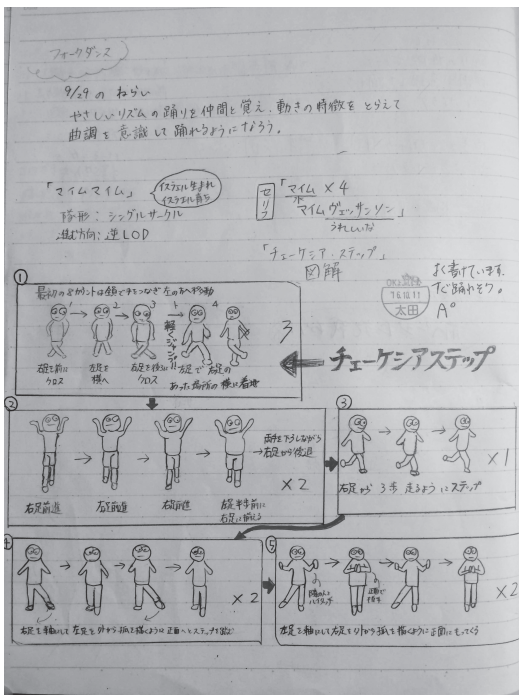 フォークダンス
9/29 の ねらい
やさしいリズムの踊りを仲間と覚え、動きの特徴を とらえて
曲調を意識して踊れるようになろう。
「マイムマイム」
イスラエル生まれ
イスラエル育ち
隊形：シングルサークル
進む方向：逆LOD
セリフ
「マイム×4
水
マイムヴェッサンソン」
うれしいな
「チェーケシア・ステップ」
図解
よく書けています。
すぐ踊れそう。
A°
OKU
16.10.11
太田
①
最初の8カウントは鎖で手をつなぎ左の方へ移動
1 2 3 4
軽くジャンプ!!
3
右足を前に
クロス
左足を
横へ
右足を後ろに
クロス
左足で 右足の
あった場所の横に着地
チェーケシアステップ
②
両手を下ろしながら
右足から後退
×2
右足前進
左足前進
右足前進
左足半歩前に
右足に揃える
③
×1
右足から 3歩 走るようにステップ
4
×2
右足を軸にして 左足を外から弧を描くように正面へとステップを踏む
5
隣の人と
ハイタッチ
正面で
拍手
×2
左足を軸にして右足を外から弧を描くように正面にもってくる